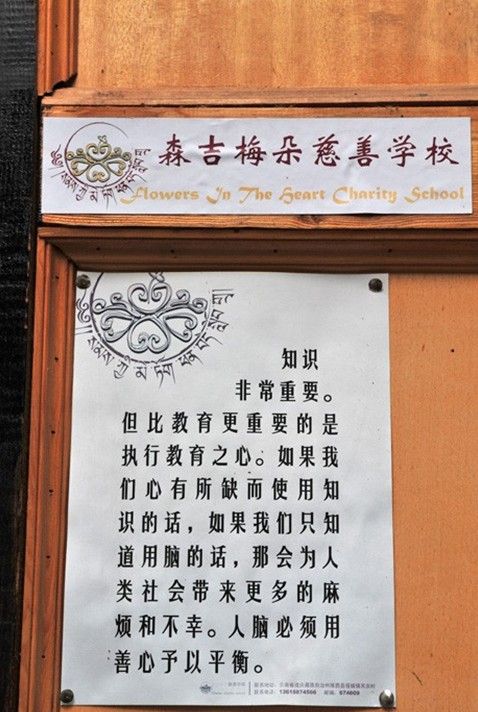 森吉梅朵慈善学校
Flowers In The Heart Charity School
知识
非常重要。
但比教育更重要的是
执行教育之心。如果我
们心有所缺而使用知
识的话，如果我们只知
道用脑的话，那会为人
类社会带来更多的麻
烦和不幸。人脑必须用
善心予以平衡。